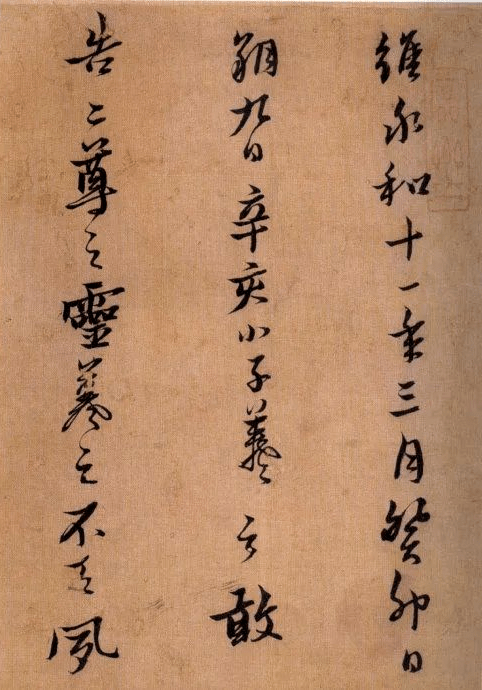 維永和十一年三月癸卯日
朔九日辛亥小子羲之敢
告二尊之靈羲之不天夙